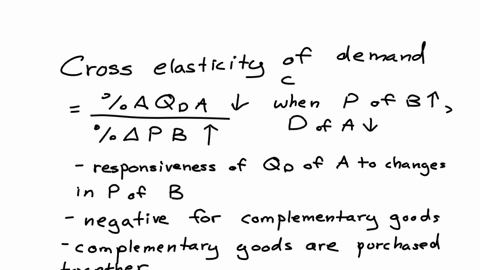 Cross elasticity of demand
c
= %Δ QD A ↓ when P of B↑,
%Δ P B ↑ D of A↓
- responsiveness of QD of A to changes
in P of B
- negative for complementary goods
- complementary goods are purchased
together